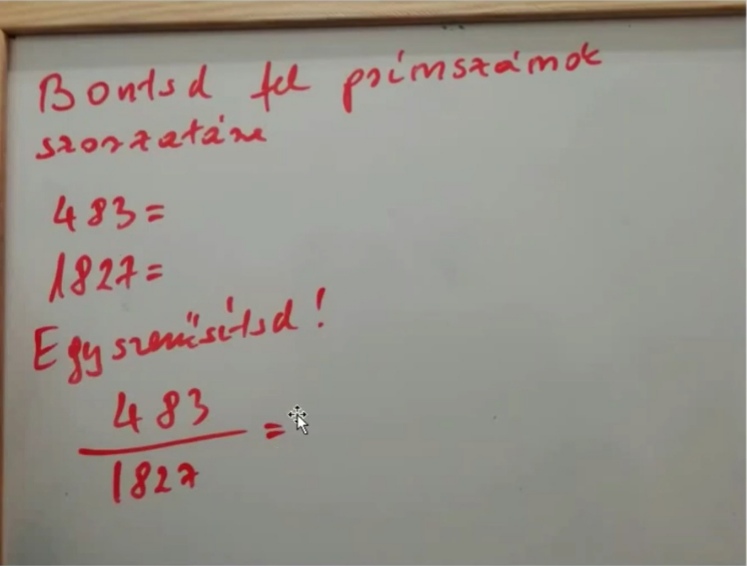 Bontsd fel prímszámok
szorzatára
483=
1827=
Egyszerűsítsd!
483
=
1827